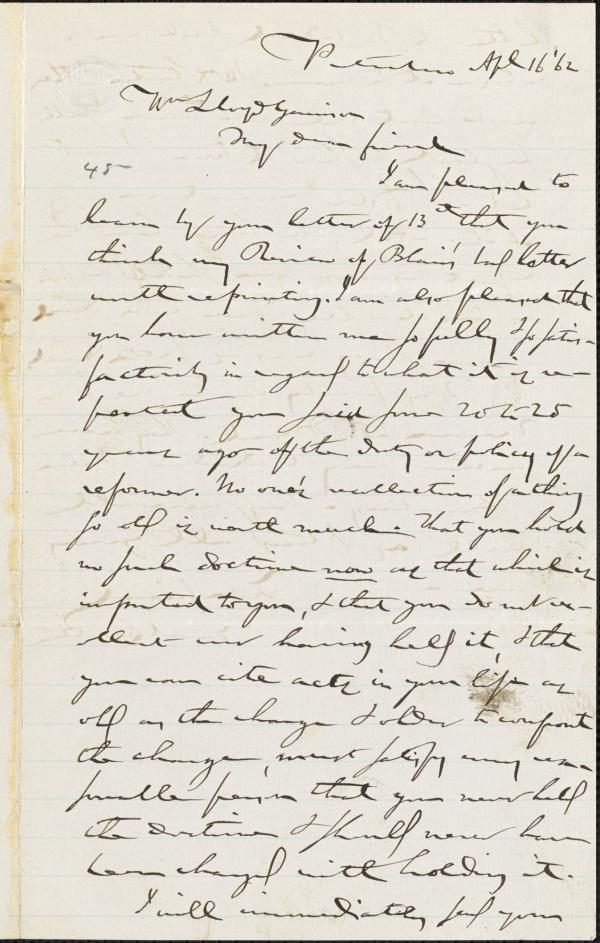 Peterboro Apl 16 '62
Wm Lloyd Garrison
My dear friend
45
I am pleased to
learn by your letter of 13th that you
think my Review of Blair's bad letter
worth reprinting. I am also pleased that
you have written me so fully & so satis-
factorily in regard to what it is re-
ported you said some 20 to 25
years ago of the duty or policy of a
reformer. No one's recollection of a thing
so old is worth much. That you hold
no such doctrine now as that which is
imputed to you, & that you do not re-
collect ever having held it, & that
you can cite acts in your life as
old as the charge & older to confront
the charge, must satisfy any rea-
sonable person that you never held
the doctrine & should never have
been charged with holding it.
I will immediately send your